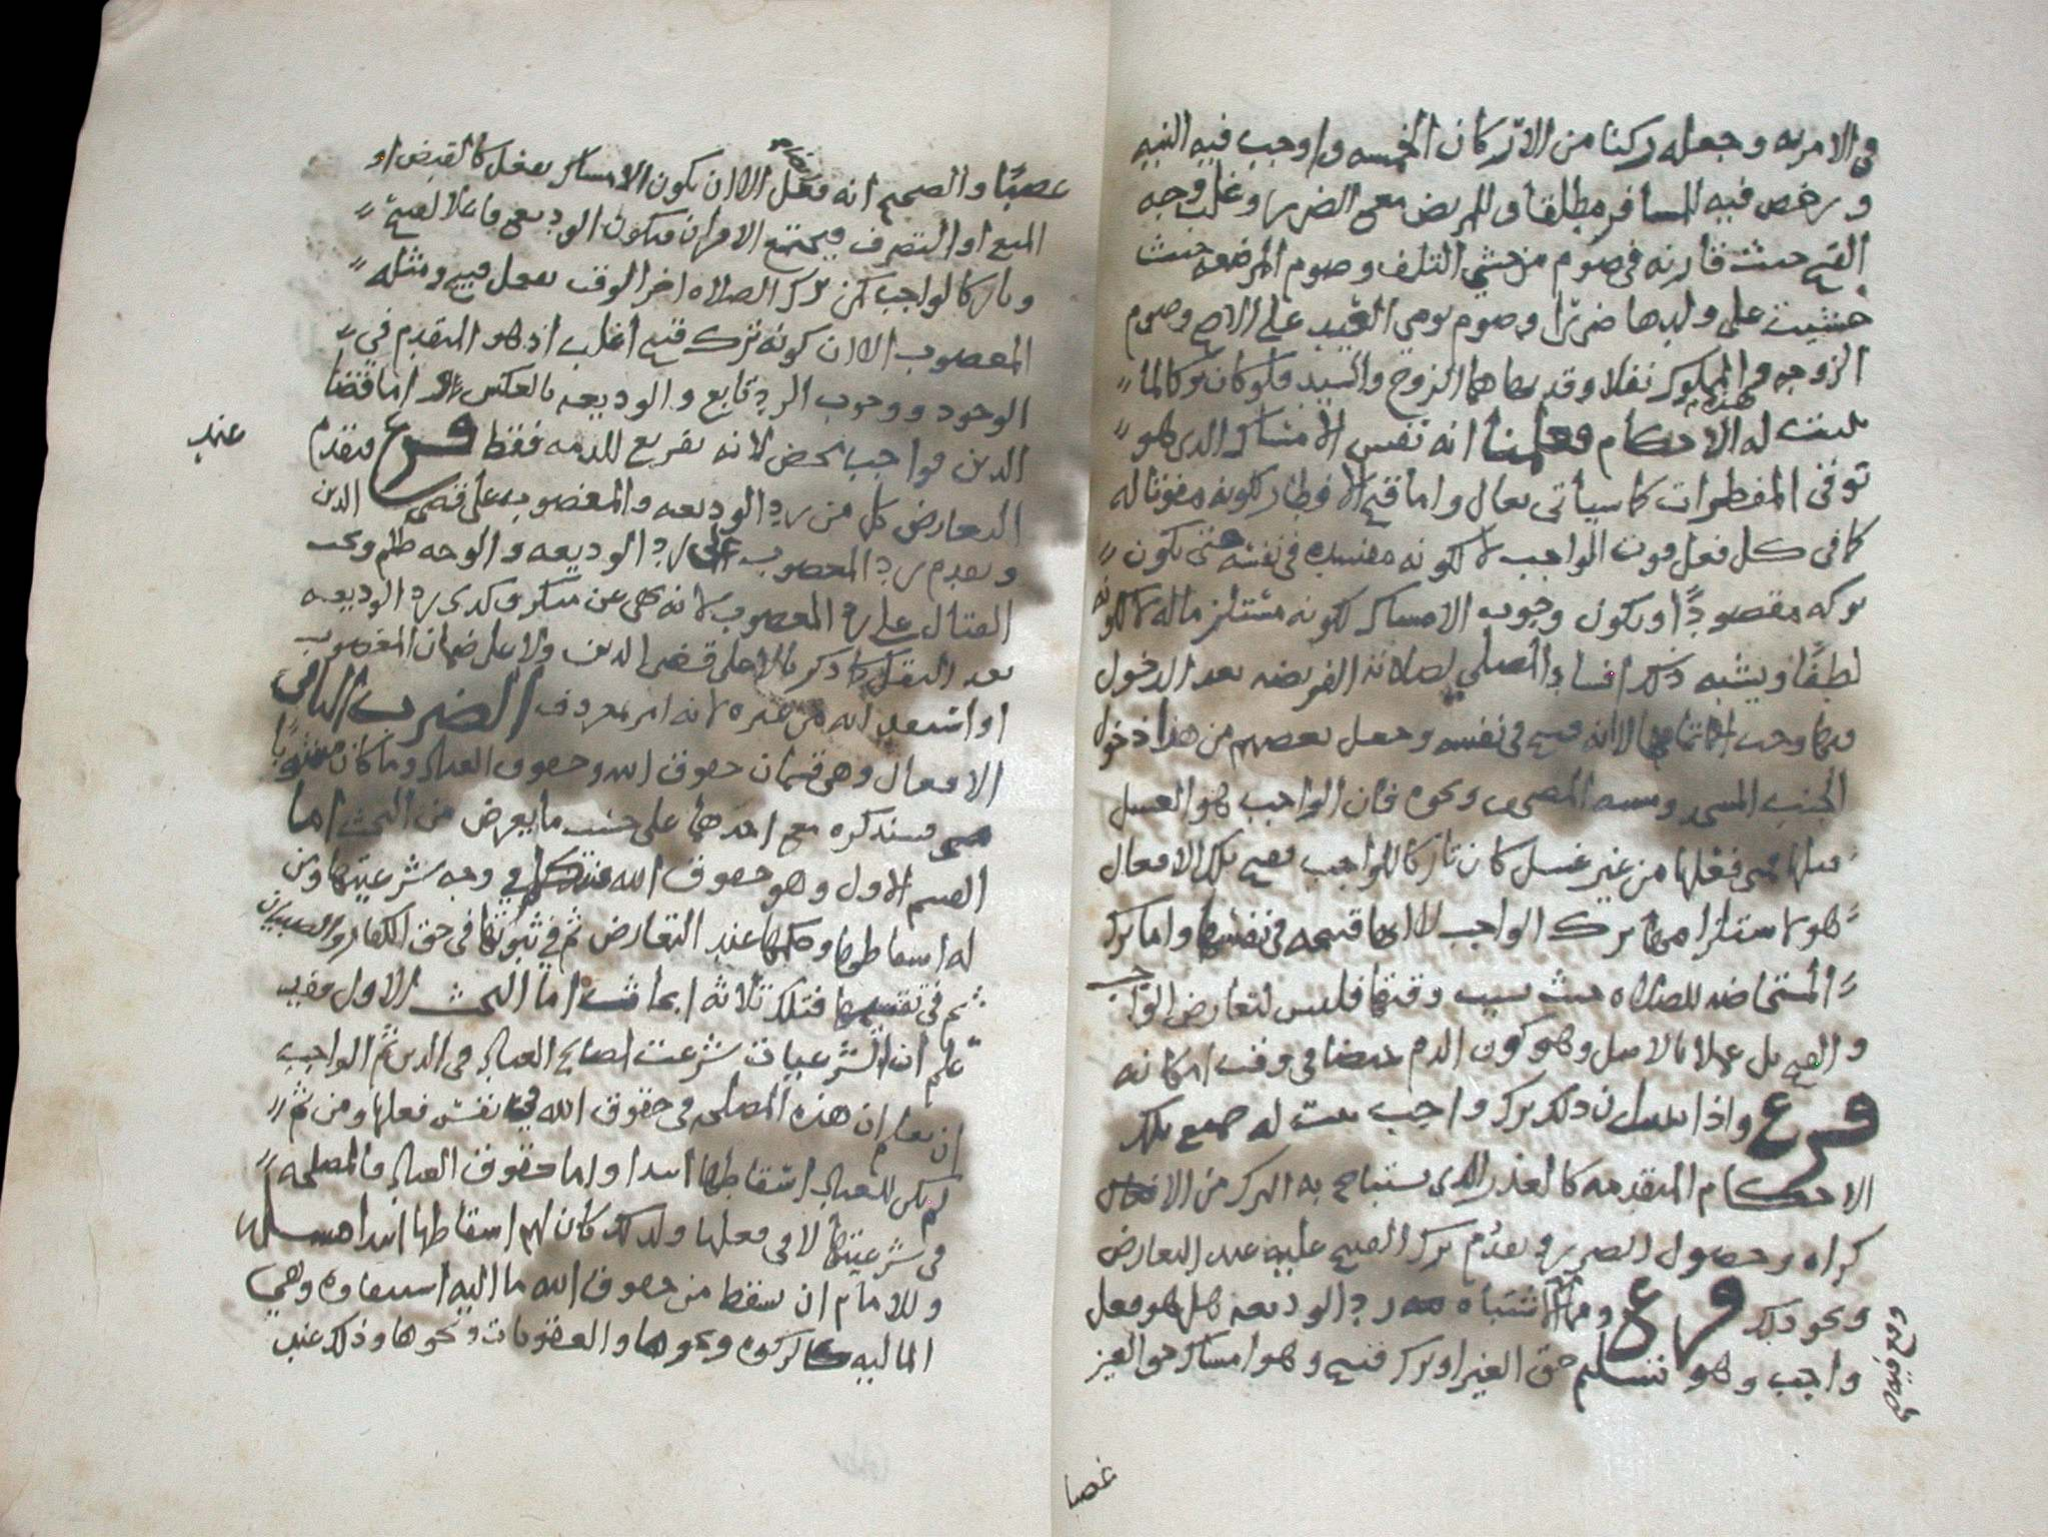 والامر به وجعله ركنا من الاركان الخمسه واوجب فيه النيه
ورخص فيه للمسافر مطلقا وللمريض مع الضرر وغلب وجه
القبح حيث قارنه في صوم من خشي التلف وصوم المرضعه حيث
خشيت على ولدها ضررا وصوم يومي العيد على الاصح وصوم
الزوجه والمملوك نفلا وقد نهاهما الزوج والسيد فلو كان تركا لما
ثبتت له هذه الاحكام فعلمنا انه نفس الامساك الذي هو
توقي المفطرات كما سيأتي يعال واما قبح الافطار فلكونه مفوتا له
كما في كل فعل فوت الواجب لا لكونه مفسده في نفسه حتى يكون
تركه مقصودًا ويكون وجوب الامساك لكونه مستلزما له لا لكونه
لطفًا ويشبه ذلك افساد المصلي لصلاته الفريضه بعد الدخول
فيها وجب الا انه قبيح في نفسه وجعل بعضهم من هذا دخول
الجنب المسجد ومسه المصحف ونحوه فان الواجب هو الغسل
قبلها فمتى فعلها من غير غسل كان تاركا للواجب فقبح تلك الافعال
هو لاستلزامها ترك الواجب لا انها قبيحه في نفسها واما ترك
المستحاضه للصلاه حيث وقتها فليس لتعارض الواجب
والقبيح بل عملا بالاصل وهو كون الدم حيضا في وقت امكانه
فرع واذا ان ذلك ترك واجب ثبت له جميع تلك
الاحكام المتقدمه كالعذر الذي يستباح به الترك من الافعال
كراه وحصول الضرر وتقدم ترك القبيح عليه عند التعارض
ونحو ذلك فرع اشتباه رد الوديعه هل هو فعل
واجب وهو تسليم حق الغير او ترك قبيح وهو امساك حق الغير
غصبا
غصبًا والصحيح انه فعل الا ان يكون الامساك بفعل كالقبض او
البيع او التصرف فيجتمع الامران فيكون الوديع فاعلا لقبيح
وتاركا لواجب كمن ترك الصلاه اخر الوقت بفعل قبيح ومثله
المغصوب الا ان كونه ترك قبيح اغلب اذ هو المتقدم في
الوجود ووجوب الرد تابع والوديعه بالعكس اما قضا
الدين فواجب محض لانه تفريع للذمه فقط فرع فيقدم عند
التعارض كل من رد الوديعه والمغصوب على قضى الدين
ويقدم رد المغصوب على رد الوديعه والوجه ظلم ويجب
القتال على رد المغصوب لانه نهي عن منكر وكذى رد الوديعه
بعد النقل كما ذكر لا على قضى الدين ولا على ضمان المغصوب
او من غيره لانه امر بمعروف الضرب الثاني
الافعال وهي قسمان حقوق الله وحقوق العباد وما كان مشوبا
فسنذكره مع احدهما على حسب ما يعرض من البحث اما
القسم الاول وهو حقوق الله في وجه شرعيتها ومن
له اسقاطها وحكمها عند التعارض ثم في ثبوتها في حق الكفار والصبيان
ثم في تقسيمها فتلك ثلاثه ابحاث اما البحث الاول فقد
علم ان الشرعيات شرعت لمصالح العباد في الدين ثم الواجب
ان يعلم ان هذه المصلحه في حقوق الله في نفس فعلها ومن ثم
لم يكن للعباد اسقاطها ابدا واما حقوق العباد فالمصلحه
في شرعيتها لا في فعلها ولذلك كان لهم اسقاطها ابدا
وللامام ان يسقط من حقوق الله ما اليه استيفاوه وهي
الماليه كالزكوه ونحوها والعقوبات ونحوها وذلك عند